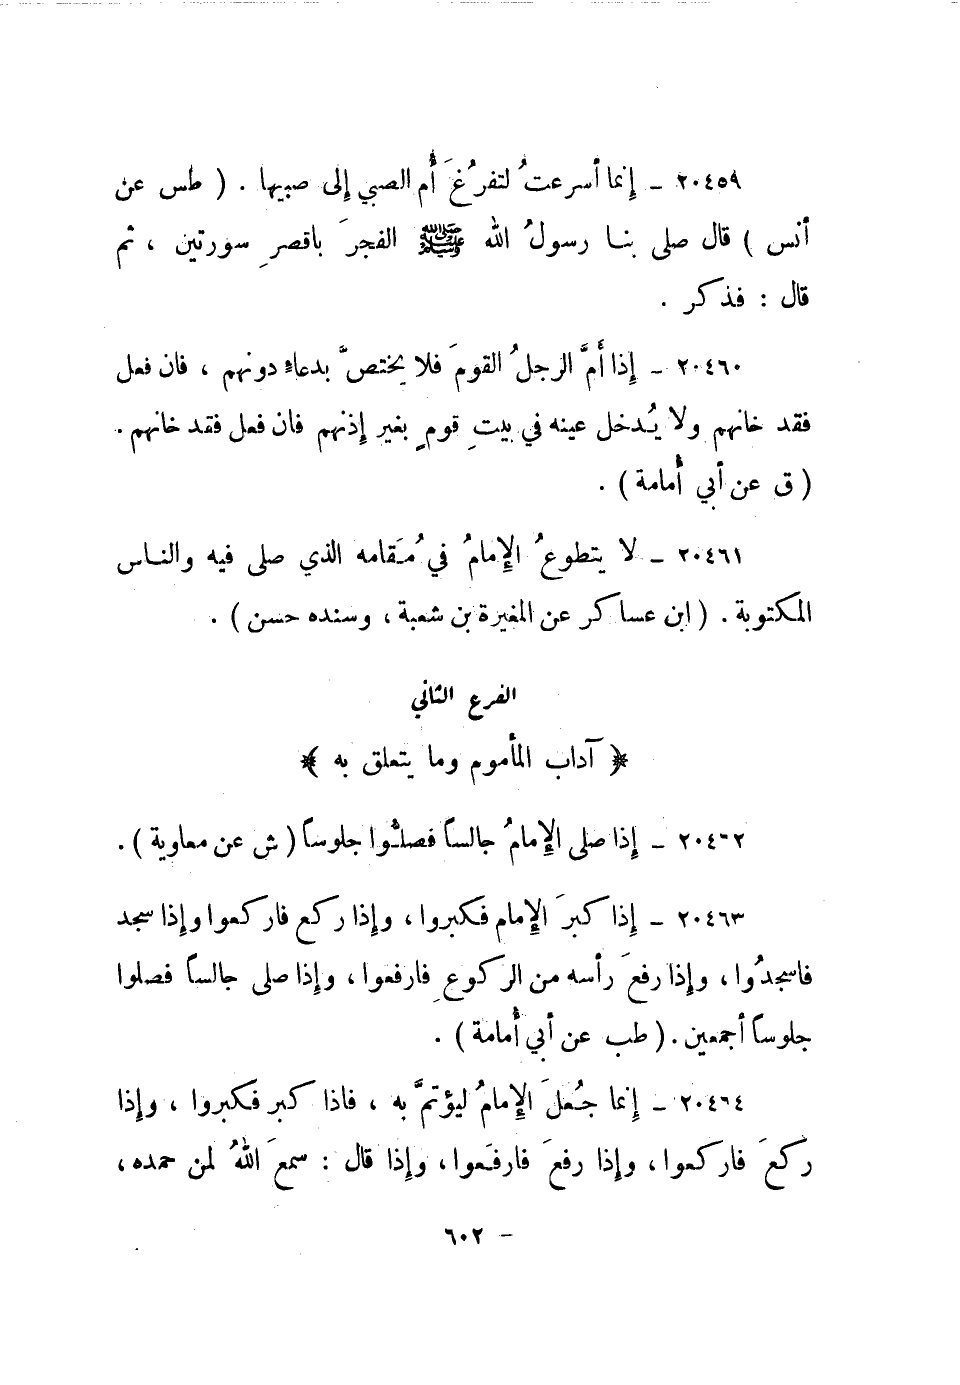 ٢٠٤٥٩ – إنما أسرعتُ لتفرُغَ أُم الصبي إلى صبيها . ( طس عن
أنس ) قال صلى بنا رسولُ الله ﷺ الفجرَ باقصرِ سورتين ، ثم
قال : فذكر .
٢٠٤٦٠ – إذا أَمَّ الرجلُ القومَ فلا يختصَّ بدعاءٍ دونهم ، فان فعل
فقد خانهم ولا يُدخل عينه في بيتِ قومٍ بغير إذنهم فان فعل فقد خانهم .
( ق عن أبي أُمامة ) .
٢٠٤٦١ – لا يتطوعُ الإمامُ في مُقَامه الذي صلى فيه والناس
المكتوبة . ( ابن عساكر عن المغيرة بن شعبة ، وسنده حسن ) .
الفرع الثاني
﴿ آداب المأموم وما يتعلق به ﴾
٢٠٤٦٢ – إذا صلى الإمامُ جالساً فصلُّوا جلوساً ( ش عن معاوية ) .
٢٠٤٦٣ – إذا كبرَ الإمام فكبروا ، وإذا ركع فاركعوا وإذا سجد
فاسجدُوا ، وإذا رفعَ رأسه من الركوعِ فارفعوا ، وإذا صلى جالساً فصلوا
جلوساً أجمعين . ( طب عن أبي أُمامة ) .
٢٠٤٦٤ – إنما جُعلَ الإمامُ ليؤتمَّ به ، فاذا كبر فكبروا ، وإذا
ركعَ فاركعوا ، وإذا رفعَ فارفَعوا ، وإذا قال : سمعَ اللهُ لمن حمده ،
– ٦٠٢